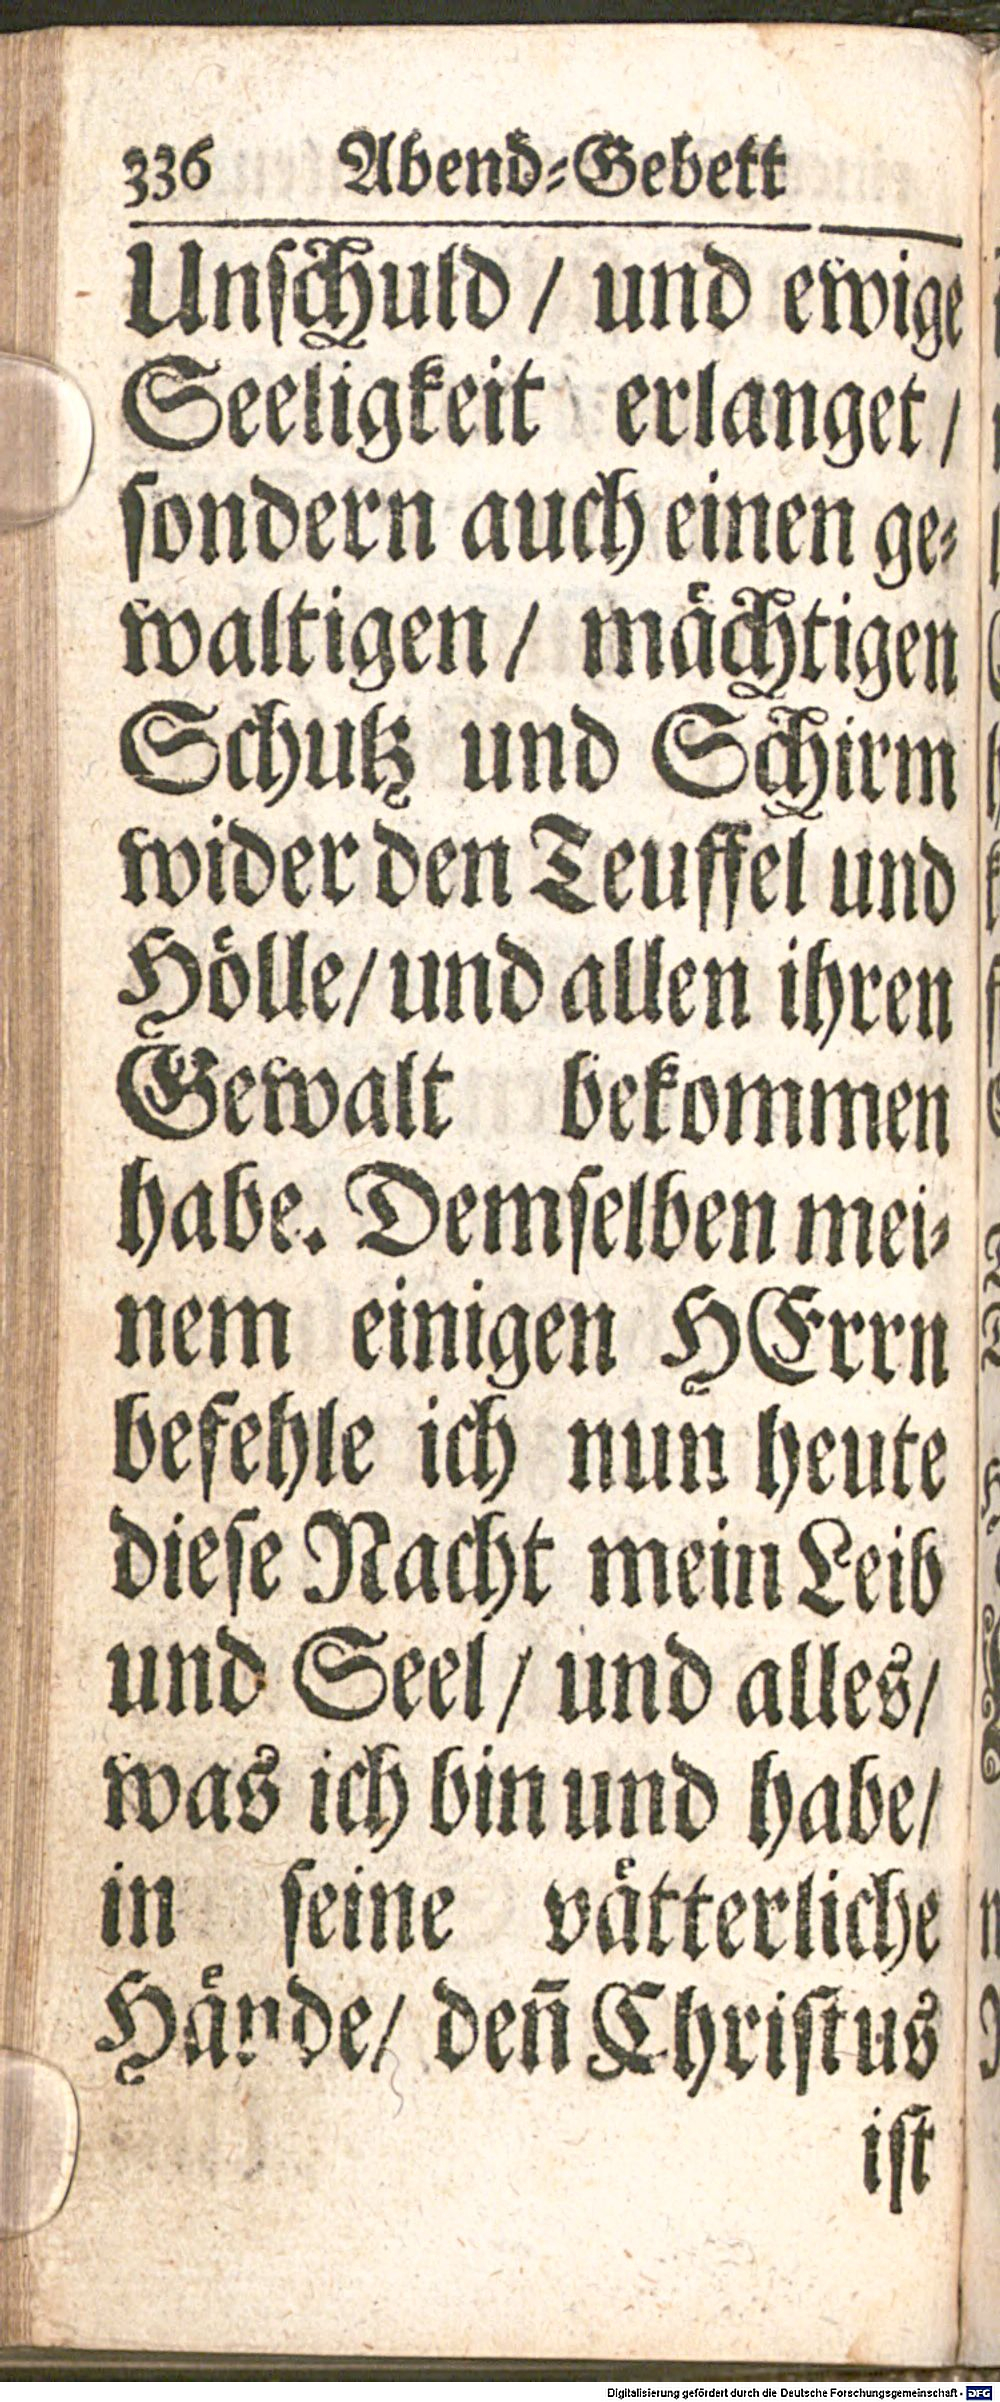 336 Abend-Gebett
Unſchuld / und ewige
Seeligkeit erlanget /
ſondern auch einen ge-
waltigen / maͤchtigen
Schutz und Schirm
wider den Teuffel und
Hoͤlle / und allen ihren
Gewalt bekommen
habe. Demſelben mei-
nem einigen HErrn
befehle ich nun heute
dieſe Nacht mein Leib
und Seel / und alles /
was ich bin und habe /
in ſeine vaͤtterliche
Haͤnde / deñ Chriſtus
iſt
Digitalisierung gefördert durch die Deutsche Forschungsgemeinschaft - DFG